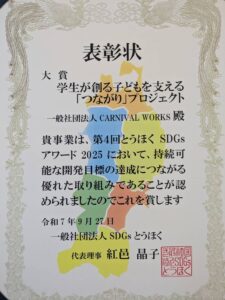 表彰状
大賞
学生が創る子どもを支える
「つながり」プロジェクト
一般社団法人 CARNIVAL WORKS 殿
貴事業は、第4回とうほく SDGs
アワード 2025 において、持続可
能な開発目標の達成につながる
優れた取り組みであることが認
められましたのでこれを賞します
令和7年9月27日
一般社団法人 SDGs とうほく
代表理事 紅邑 晶子